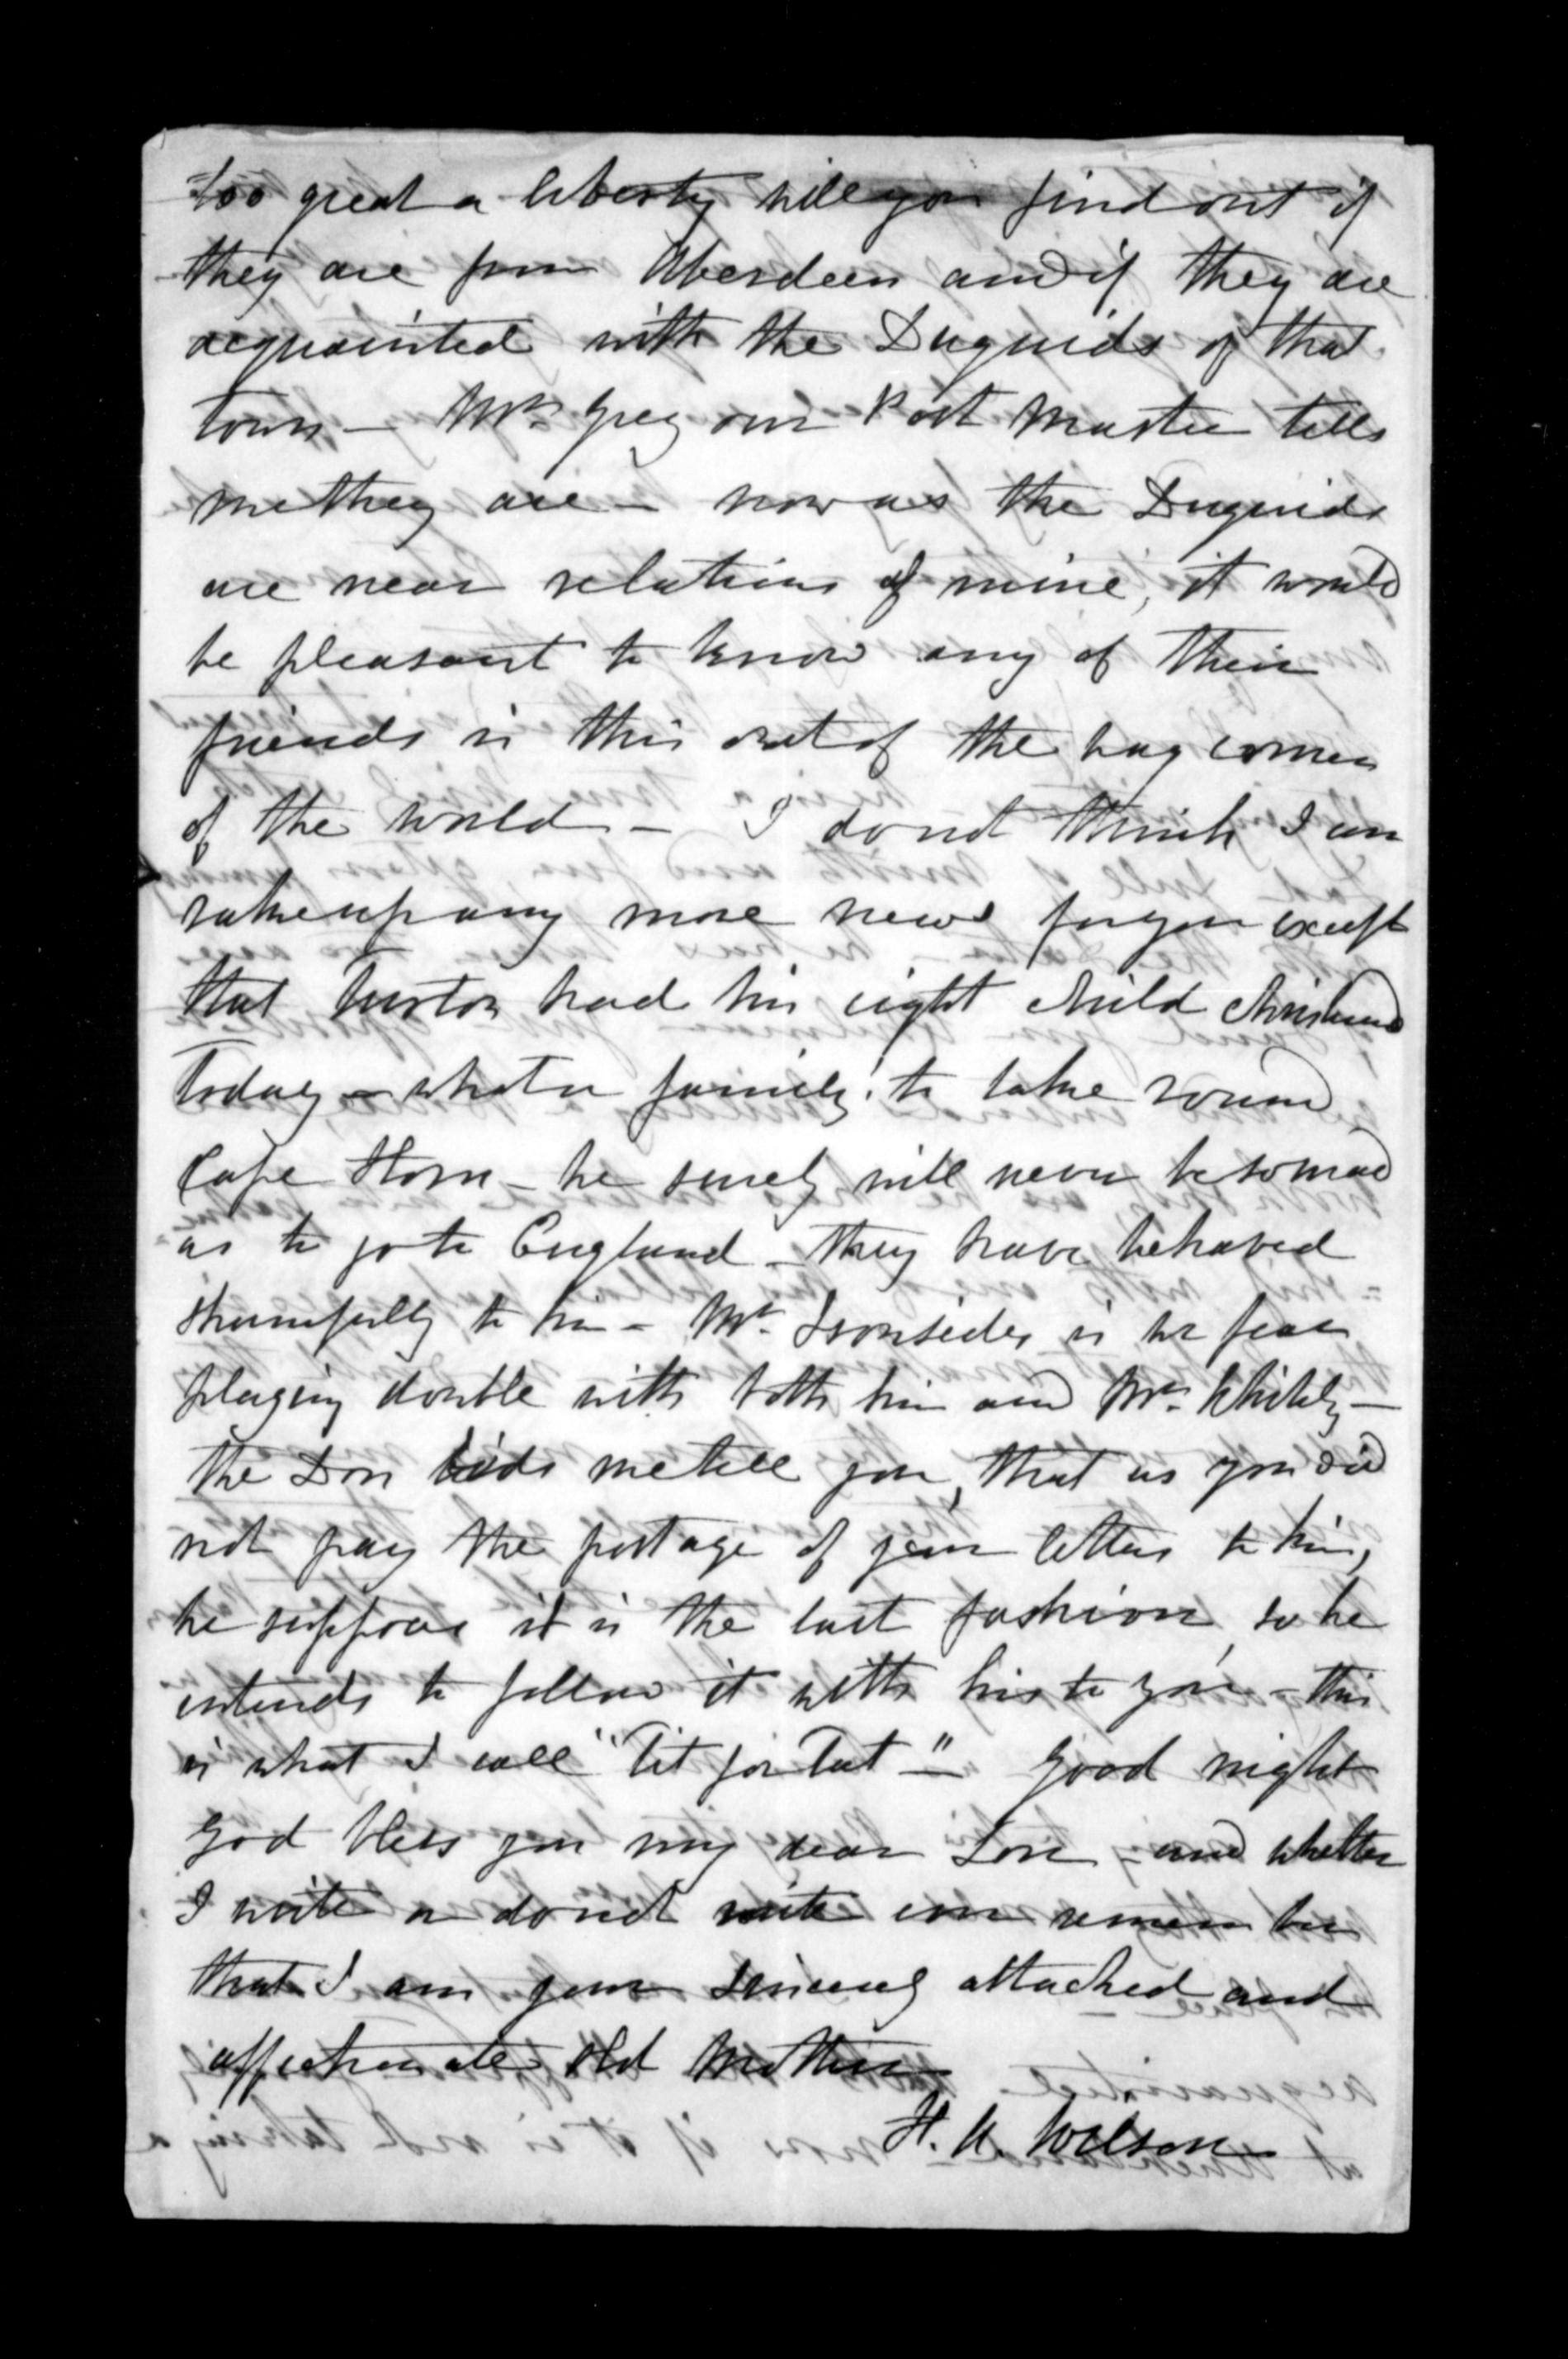 too great a liberty will you find out if
they are from Aberdeen and if they are
acquainted with the Duguids of that
town — Mr. Grey our Post Master tells
me they are — now as the Duguids
are near relations of mine, it would
be pleasant to know any of their
friends in this out of the way corner
of the world — I do not think I can
rake up any more news for you except
that Turton had his eight child christened
Today — what a family! to take round
Cape Horn — he surely will never be so mad
as to go to England — they have behaved
shamefully to him — Mr. Ironsides is we fear
playing double with both him and Mr. Whitely —
the Don bids me tell you, that as you did
not pay the postage of your letters to him,
he supposes it is the last fashion, so he
intends to follow it with his to you — this
is what I call "Tit for Tat —" Good night
God bless you my dear Son — and whether
I write or do not write ever remember
that I am your sincerely attached and
affectionate old Mother
H. A. Wilson